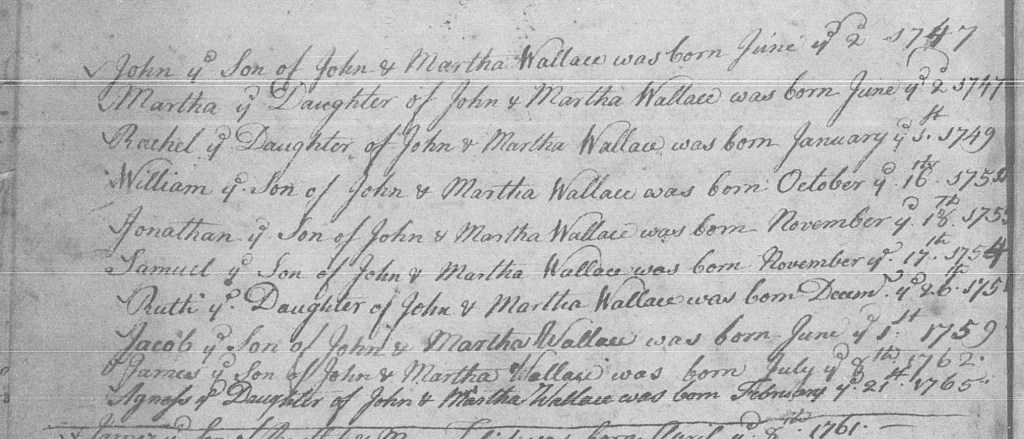 John yᵉ Son of John & Martha Wallace was born June yᵉ 2ᵈ 1747
Martha yᵉ Daughter of John & Martha Wallace was born June yᵉ 2ᵈ 1747
Rachel yᵉ Daughter of John & Martha Wallace was born January yᵉ 1ˢᵗ 1749
William yᵉ Son of John & Martha Wallace was born October yᵉ 16ᵗʰ
Jonathan yᵉ Son of John & Martha Wallace was born November yᵉ 18ᵗʰ
Samuel yᵉ Son of John & Martha Wallace was born November yᵉ 17ᵗʰ 1754
Ruth yᵉ Daughter of John & Martha Wallace was born Decemʳ yᵉ 26ᵗʰ
Jacob yᵉ Son of John & Martha Wallace was born June yᵉ 1ˢᵗ 1759
James yᵉ Son of John & Martha Wallace was born July yᵉ 8ᵗʰ 1762
Agness yᵉ Daughter of John & Martha Wallace was born February yᵉ 21ˢᵗ 1765
James yᵉ Son of was born April yᵉ 1761